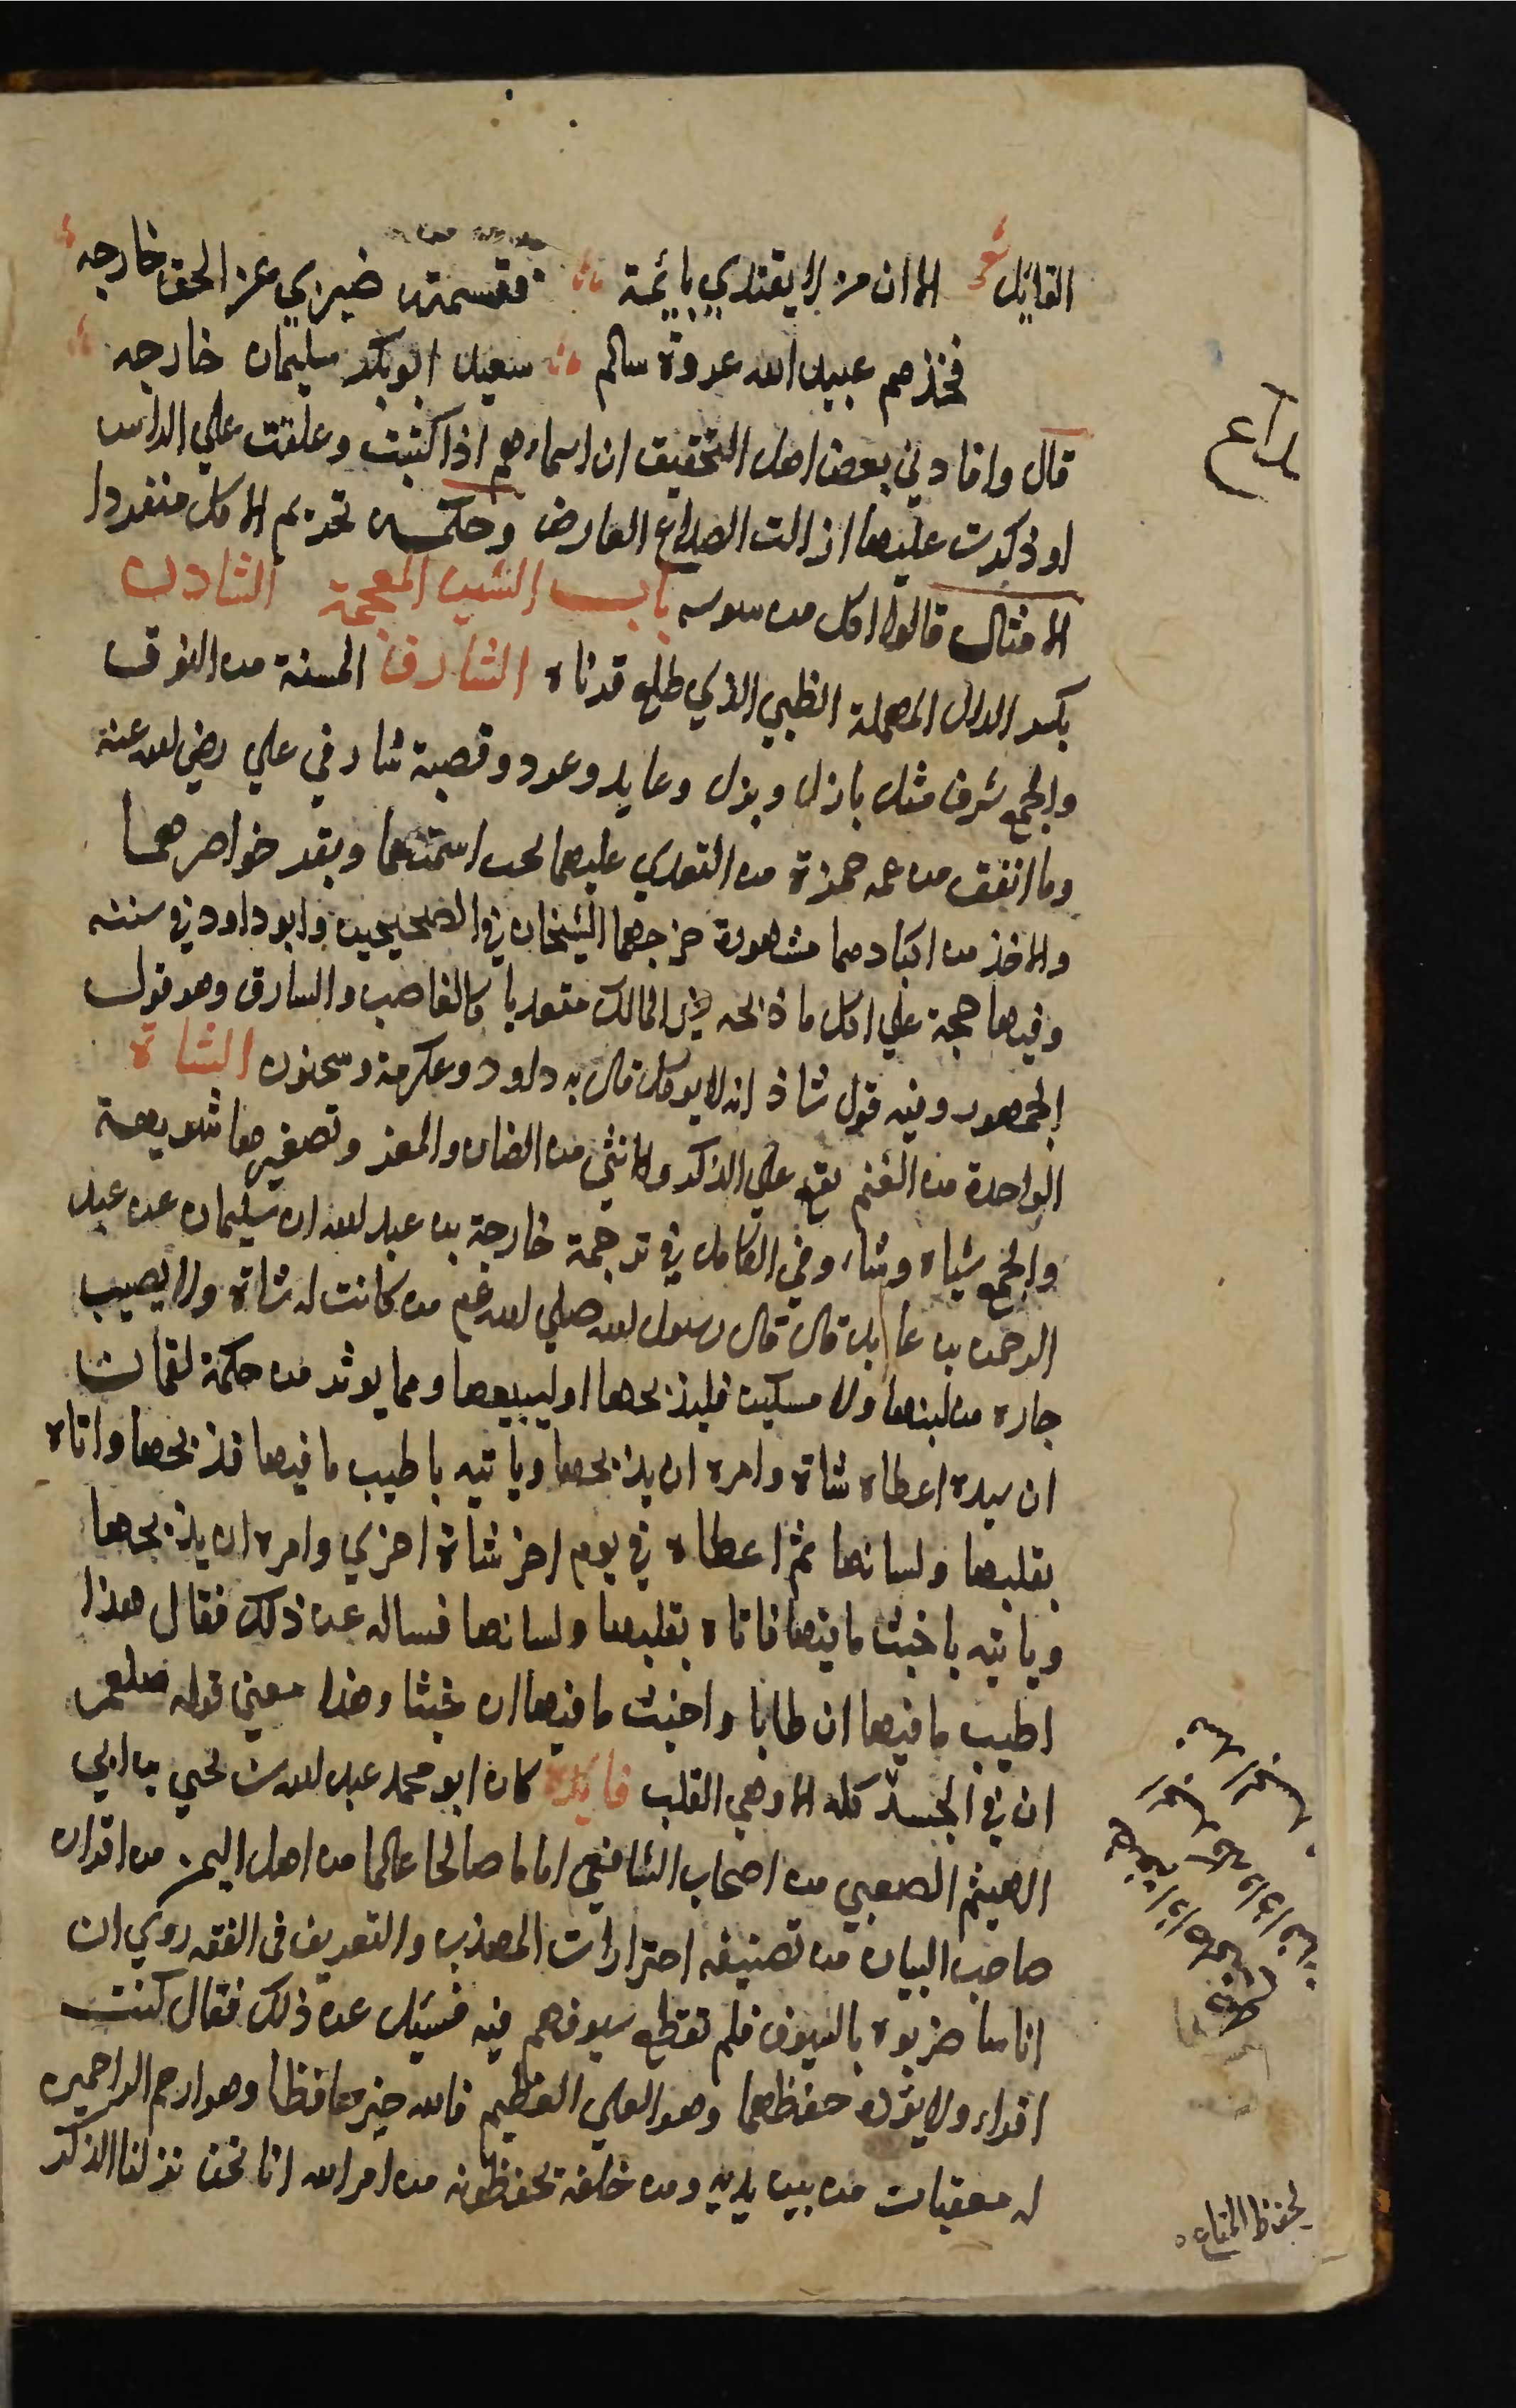 القايل شعر الا ان من لا يقتدي بائمة فقسمته ضيزي عن الحق خارجه
فخذهم عبيد الله عروة سالم سعيد ابو بكر سليمان خارجه
قال وافادني بعض اهل التحقيق ان اسماءهم اذا كتبت وعلقت علي الراس
او ذكرت عليها ازالت الصداع العارض وحكمه تحريم الاكل منفردا
الامثال قالوا اكل من سوسه باب الشين المعجمة الشادن
بكسر الدال المهملة الظبي الذي طلع قرناه الشارف المسنة من النوق
والجمع شرف مثل بازل وبزل وعايد وعود وقصة شارفي علي رضي الله عنه
وما اتفق من عمه حمزة من التعدي عليهما لجب اسنمتهما وبقر خواصرهما
والاخذ من اكبادهما مشهورة خرجها الشيخان في الصحيحين وابو داود في سننه
وفيها حجة علي اكل ما ذبحه غير المالك متعديا كالغاصب والسارق وهو قول
الجمهور وفيه قول شاذ انه لا يوكل قال به داود وعكرمة وسحنون الشاة
الواحدة من الغنم يقع علي الذكر والانثي من الضان والمعز وتصغيرها شويهة
والجمع شياه وشاء وفي الكامل في ترجمة خارجة بن عبد الله ان سليمان عن عبد
الرحمن بن عايد قال قال رسول الله صلي الله عم من كانت له شاة ولا يصيب
جاره من لبنها ولا مسكين فليذبحها او ليبيعها ومما يوثر من حكمة لقمان
ان سيده اعطاه شاة وامره ان يذبحها وياتيه باطيب ما فيها فذبحها واتاه
بقلبها ولسانها ثم اعطاه في يوم اخر شاة اخري وامره ان يذبحها
وياتيه باخبث ما فيها فاتاه بقلبها ولسانها فساله عن ذلك فقال هذا
اطيب ما فيها ان طابا واخبث ما فيها ان خبثا وهذا معني قوله صلعم
ان في الجسد كله الا وهي القلب فايدة كان ابو محمد عبد الله بن يحيي بن ابي
الهيثم الصعبي من اصحاب الشافعي اماما صالحا عالما من اهل اليمن من اقران
صاحب البيان من تصنيفه احترازات المهذب والتعريف في الفقه روي ان
اناسا ضربوه بالسيوف فلم تقطع سيوفهم فيه فسئل عن ذلك فقال كنت
اقراء ولا يؤده حفظهما وهو العلي العظيم فالله خير حافظا وهو ارحم الراحمين
له معقبات من بين يديه ومن خلفه يحفظونه من امر الله انا نحن نزلنا الذكر
لحفظ المتاع